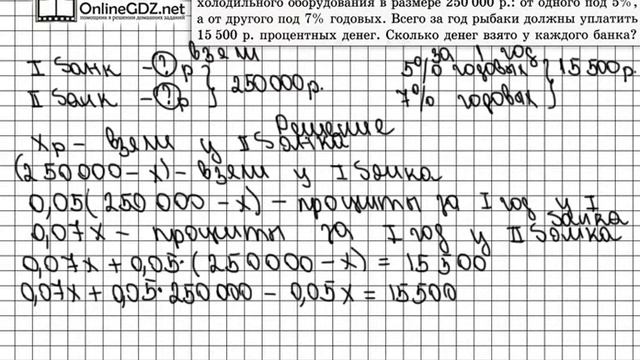 OnlineGDZ.net
помощники в решении домашних заданий
холодильного оборудования в размере 250 000 р.: от одного под 5%,
а от другого под 7% годовых. Всего за год рыбаки должны уплатить
15 500 р. процентных денег. Сколько денег взято у каждого банка?
взяли за 1 год
I банк - ? р } 250000р. 5% годовых } 15500р.
II банк - ? р 7% годовых
Решение
x р - взяли у II банка
(250000 - x) - взяли у I банка
0,05(250 000 - x) - проценты за I год у I банка
0,07x - проценты за I год у II банка
0,07x + 0,05·(250000 - x) = 15 500
0,07x + 0,05·250 000 - 0,05x = 15500